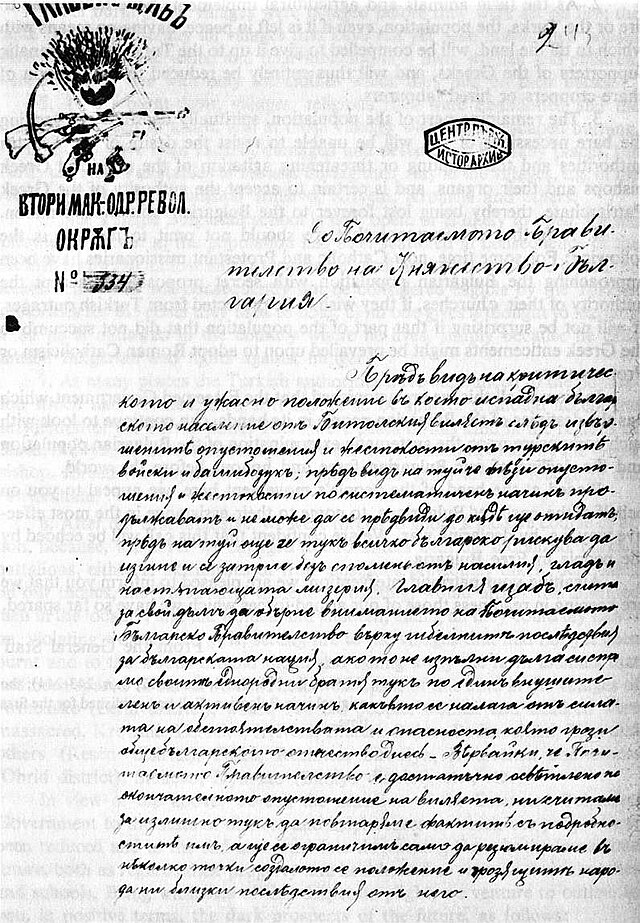 ГЛАВЕН ЩАБЪ
НА
ВТОРИ МАК.-ОДР. РЕВОЛ.
ОКРѪГЪ
№ 534
ЦЕНТР. ДЪРЖ.
ИСТОР. АРХИВ
До Почитаемото Прави-
телство на Княжество Бъл-
гария.
Прѣдъ видъ на критичес-
кото и ужасно положение въ което испадна българ-
ското население отъ Битолския вилаетъ слѣдъ извър-
шенитѣ опустошения и жестокости отъ турскитѣ
войски и башибозукъ; прѣдъ видъ на туй че тѣзи опусто-
шения и жестокости по систематиченъ начинъ про-
дължаватъ и не може да се прѣдвиди до кѫдѣ ще отидатъ;
прѣдъ на туй още че тукъ всичко българско рискува да
изгине и се затрие безъ споменъ отъ насилия, гладъ и
настѫпающата мизерия, Главния щабъ, счита
за свой дългъ да обърне вниманието на Почитаемото
Българско Правителство върху гибелнитѣ послѣдствия
за българската нация, ако то не изпълни дълга си спря-
мо своитѣ еднородни братя тукъ по единъ внушите-
ленъ и активенъ начинъ, какъвто се налага отъ сила-
та на обстоятелствата и опасността, която грози
общебългарското отечество днесъ. Вѣрвайки, че Почи-
таемото Правителство е достатъчно освѣтлено по
окончателното опустошение на вилаета, ний считаме
за излишно тукъ да повтаряме фактитѣ съ подробно-
ститѣ имъ, а ще се ограничимъ само да резюмираме въ
нѣколко точки създалото се положение и грозящитѣ наро-
да ни близки послѣдствия отъ него.